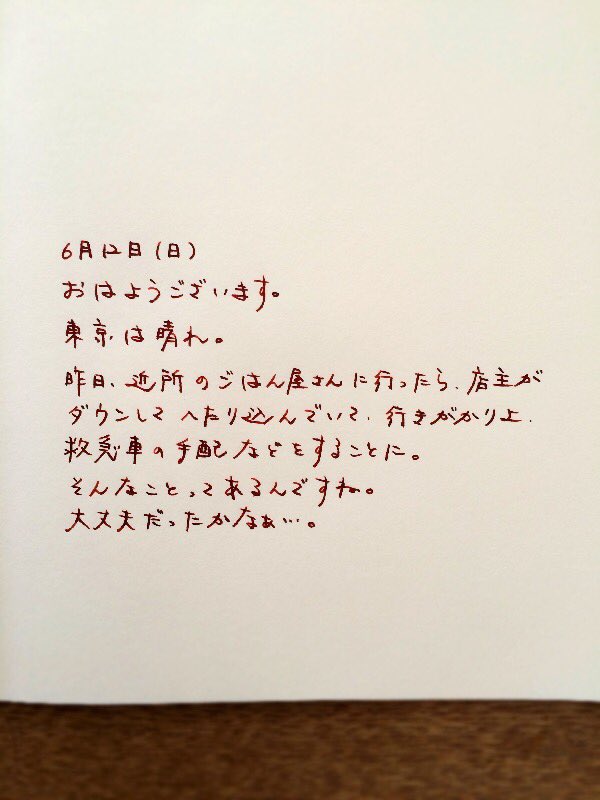 6月12日(日)
おはようございます。
東京は晴れ。
昨日、近所のごはん屋さんに行ったら、店主が
ダウンしてへたり込んでいて、行きがかり上、
救急車の手配などをすることに。
そんなことってあるんですね。
大丈夫だったかなぁ…。